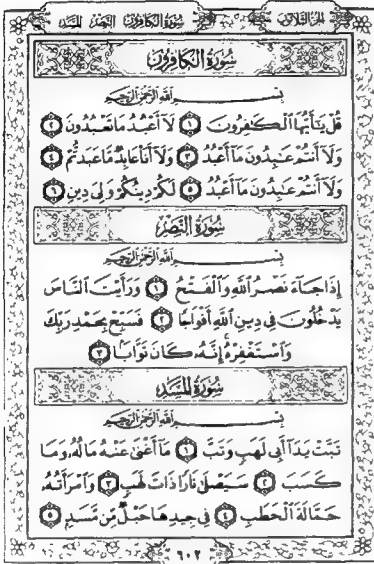 الجزء الثلاثون
سورة الكافرون النصر المسد
سُورَةُ الكَافِرُونَ
بِسْمِ اللَّهِ الرَّحْمَٰنِ الرَّحِيمِ
قُلْ يَٰٓأَيُّهَا ٱلْكَٰفِرُونَ ۝١ لَآ أَعْبُدُ مَا تَعْبُدُونَ ۝٢
وَلَآ أَنتُمْ عَٰبِدُونَ مَآ أَعْبُدُ ۝٣ وَلَآ أَنَا۠ عَابِدٌ مَّا عَبَدتُّمْ ۝٤
وَلَآ أَنتُمْ عَٰبِدُونَ مَآ أَعْبُدُ ۝٥ لَكُمْ دِينُكُمْ وَلِىَ دِينِ ۝٦
سُورَةُ النَّصْرِ
بِسْمِ اللَّهِ الرَّحْمَٰنِ الرَّحِيمِ
إِذَا جَآءَ نَصْرُ ٱللَّهِ وَٱلْفَتْحُ ۝١ وَرَأَيْتَ ٱلنَّاسَ
يَدْخُلُونَ فِى دِينِ ٱللَّهِ أَفْوَاجًا ۝٢ فَسَبِّحْ بِحَمْدِ رَبِّكَ
وَٱسْتَغْفِرْهُ إِنَّهُۥ كَانَ تَوَّابًۢا ۝٣
سُورَةُ المَسَدِ
بِسْمِ اللَّهِ الرَّحْمَٰنِ الرَّحِيمِ
تَبَّتْ يَدَآ أَبِى لَهَبٍ وَتَبَّ ۝١ مَآ أَغْنَىٰ عَنْهُ مَالُهُۥ وَمَا
كَسَبَ ۝٢ سَيَصْلَىٰ نَارًا ذَاتَ لَهَبٍ ۝٣ وَٱمْرَأَتُهُۥ
حَمَّالَةَ ٱلْحَطَبِ ۝٤ فِى جِيدِهَا حَبْلٌ مِّن مَّسَدٍۭ ۝٥
٦٠٢